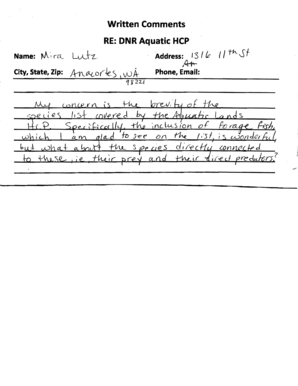 Written Comments
RE: DNR Aquatic HCP
Name: Mira Lutz Address: 1316 11th St
A+
City, State, Zip: Anacortes, WA Phone, Email:
98221
My concern is the brevity of the
species list covered by the Aquatic Lands
HCP. Specifically, the inclusion of forage fish,
which I am glad to see on the list, is wonderful,
but what about the species directly connected
to these, ie their prey and their direct predators?